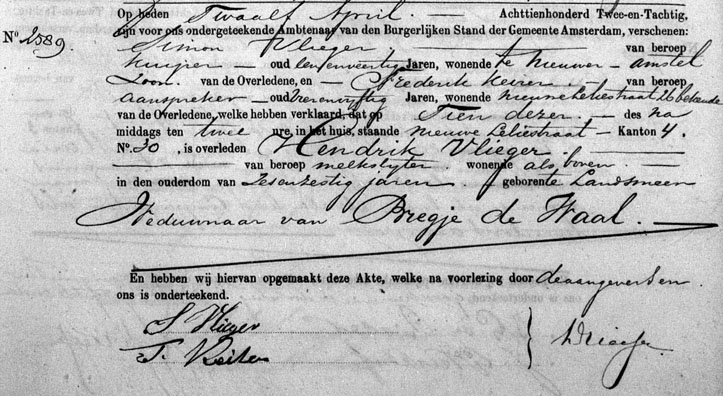 Op heden Twaalf April Achttienhonderd Twee-en-Tachtig,
Nº 2589. zijn voor ons ondergeteekende Ambtenaar van den Burgerlijken Stand der Gemeente Amsterdam, verschenen:
Simon Vlieger van beroep
kuiper oud eenenveertig Jaren, wonende te Nieuwer-amstel
Zoon van de Overledene, en Frederik van beroep
aanspreker oud Jaren, wonende nieuwe Leliestraat 26 bekende
van de Overledene, welke hebben verklaard, dat op Tien dezer des na
middags ten twee ure, in het huis, staande nieuwe Leliestraat Kanton 4.
Nº. 30, is overleden Hendrik Vlieger
van beroep melkslyter wonende als boven
in den ouderdom van Zesenzestig jaren geboren te Landsmeer
Weduwnaar van Bregje de Waal.
En hebben wij hiervan opgemaakt deze Akte, welke na voorlezing door de aangevers en
ons is onderteekend.
S Vlieger
F.